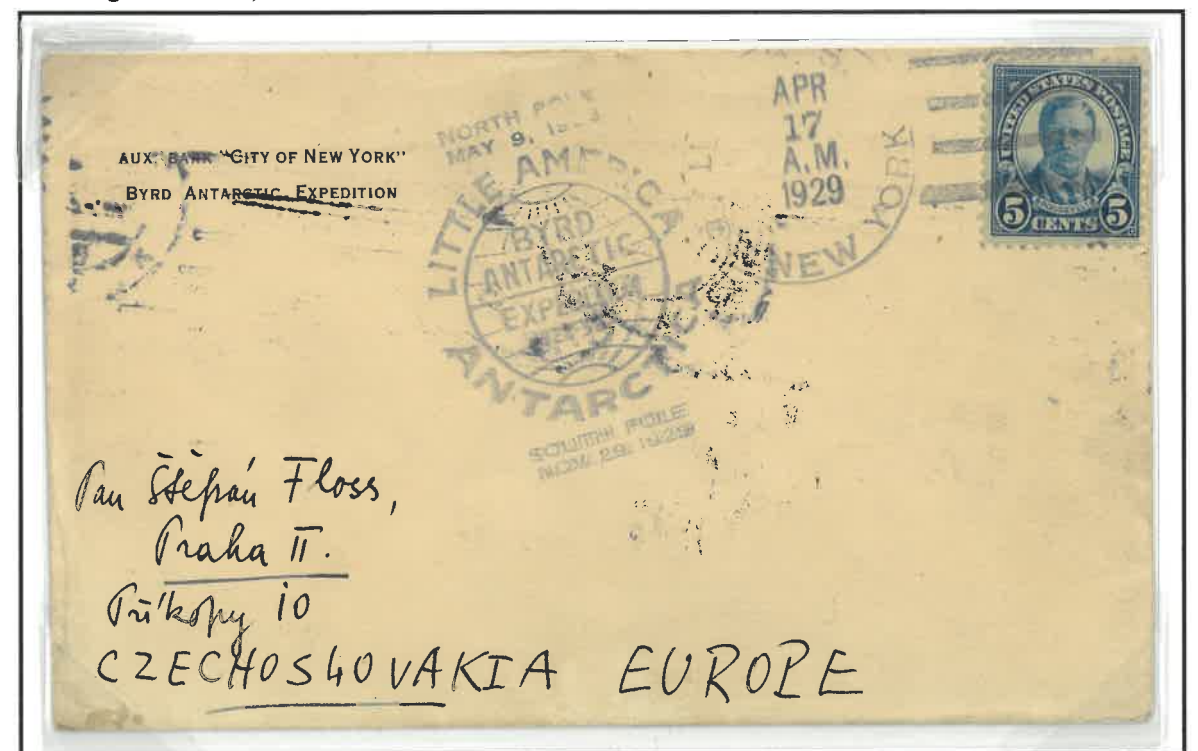 AUX. BARK "CITY OF NEW YORK"
BYRD ANTARCTIC EXPEDITION
NORTH POLE
MAY 9,
LITTLE AMERICA
BYRD
ANTARCTIC
ANTARCTIC
SOUTH POLE
NOV. 29, 1929
APR
17
A.M.
1929
NEW YORK
UNITED STATES POSTAGE
5 CENTS 5
Pan Štěpán Floss,
Praha II.
Příkopy 10
CZECHOSLOVAKIA EUROPE